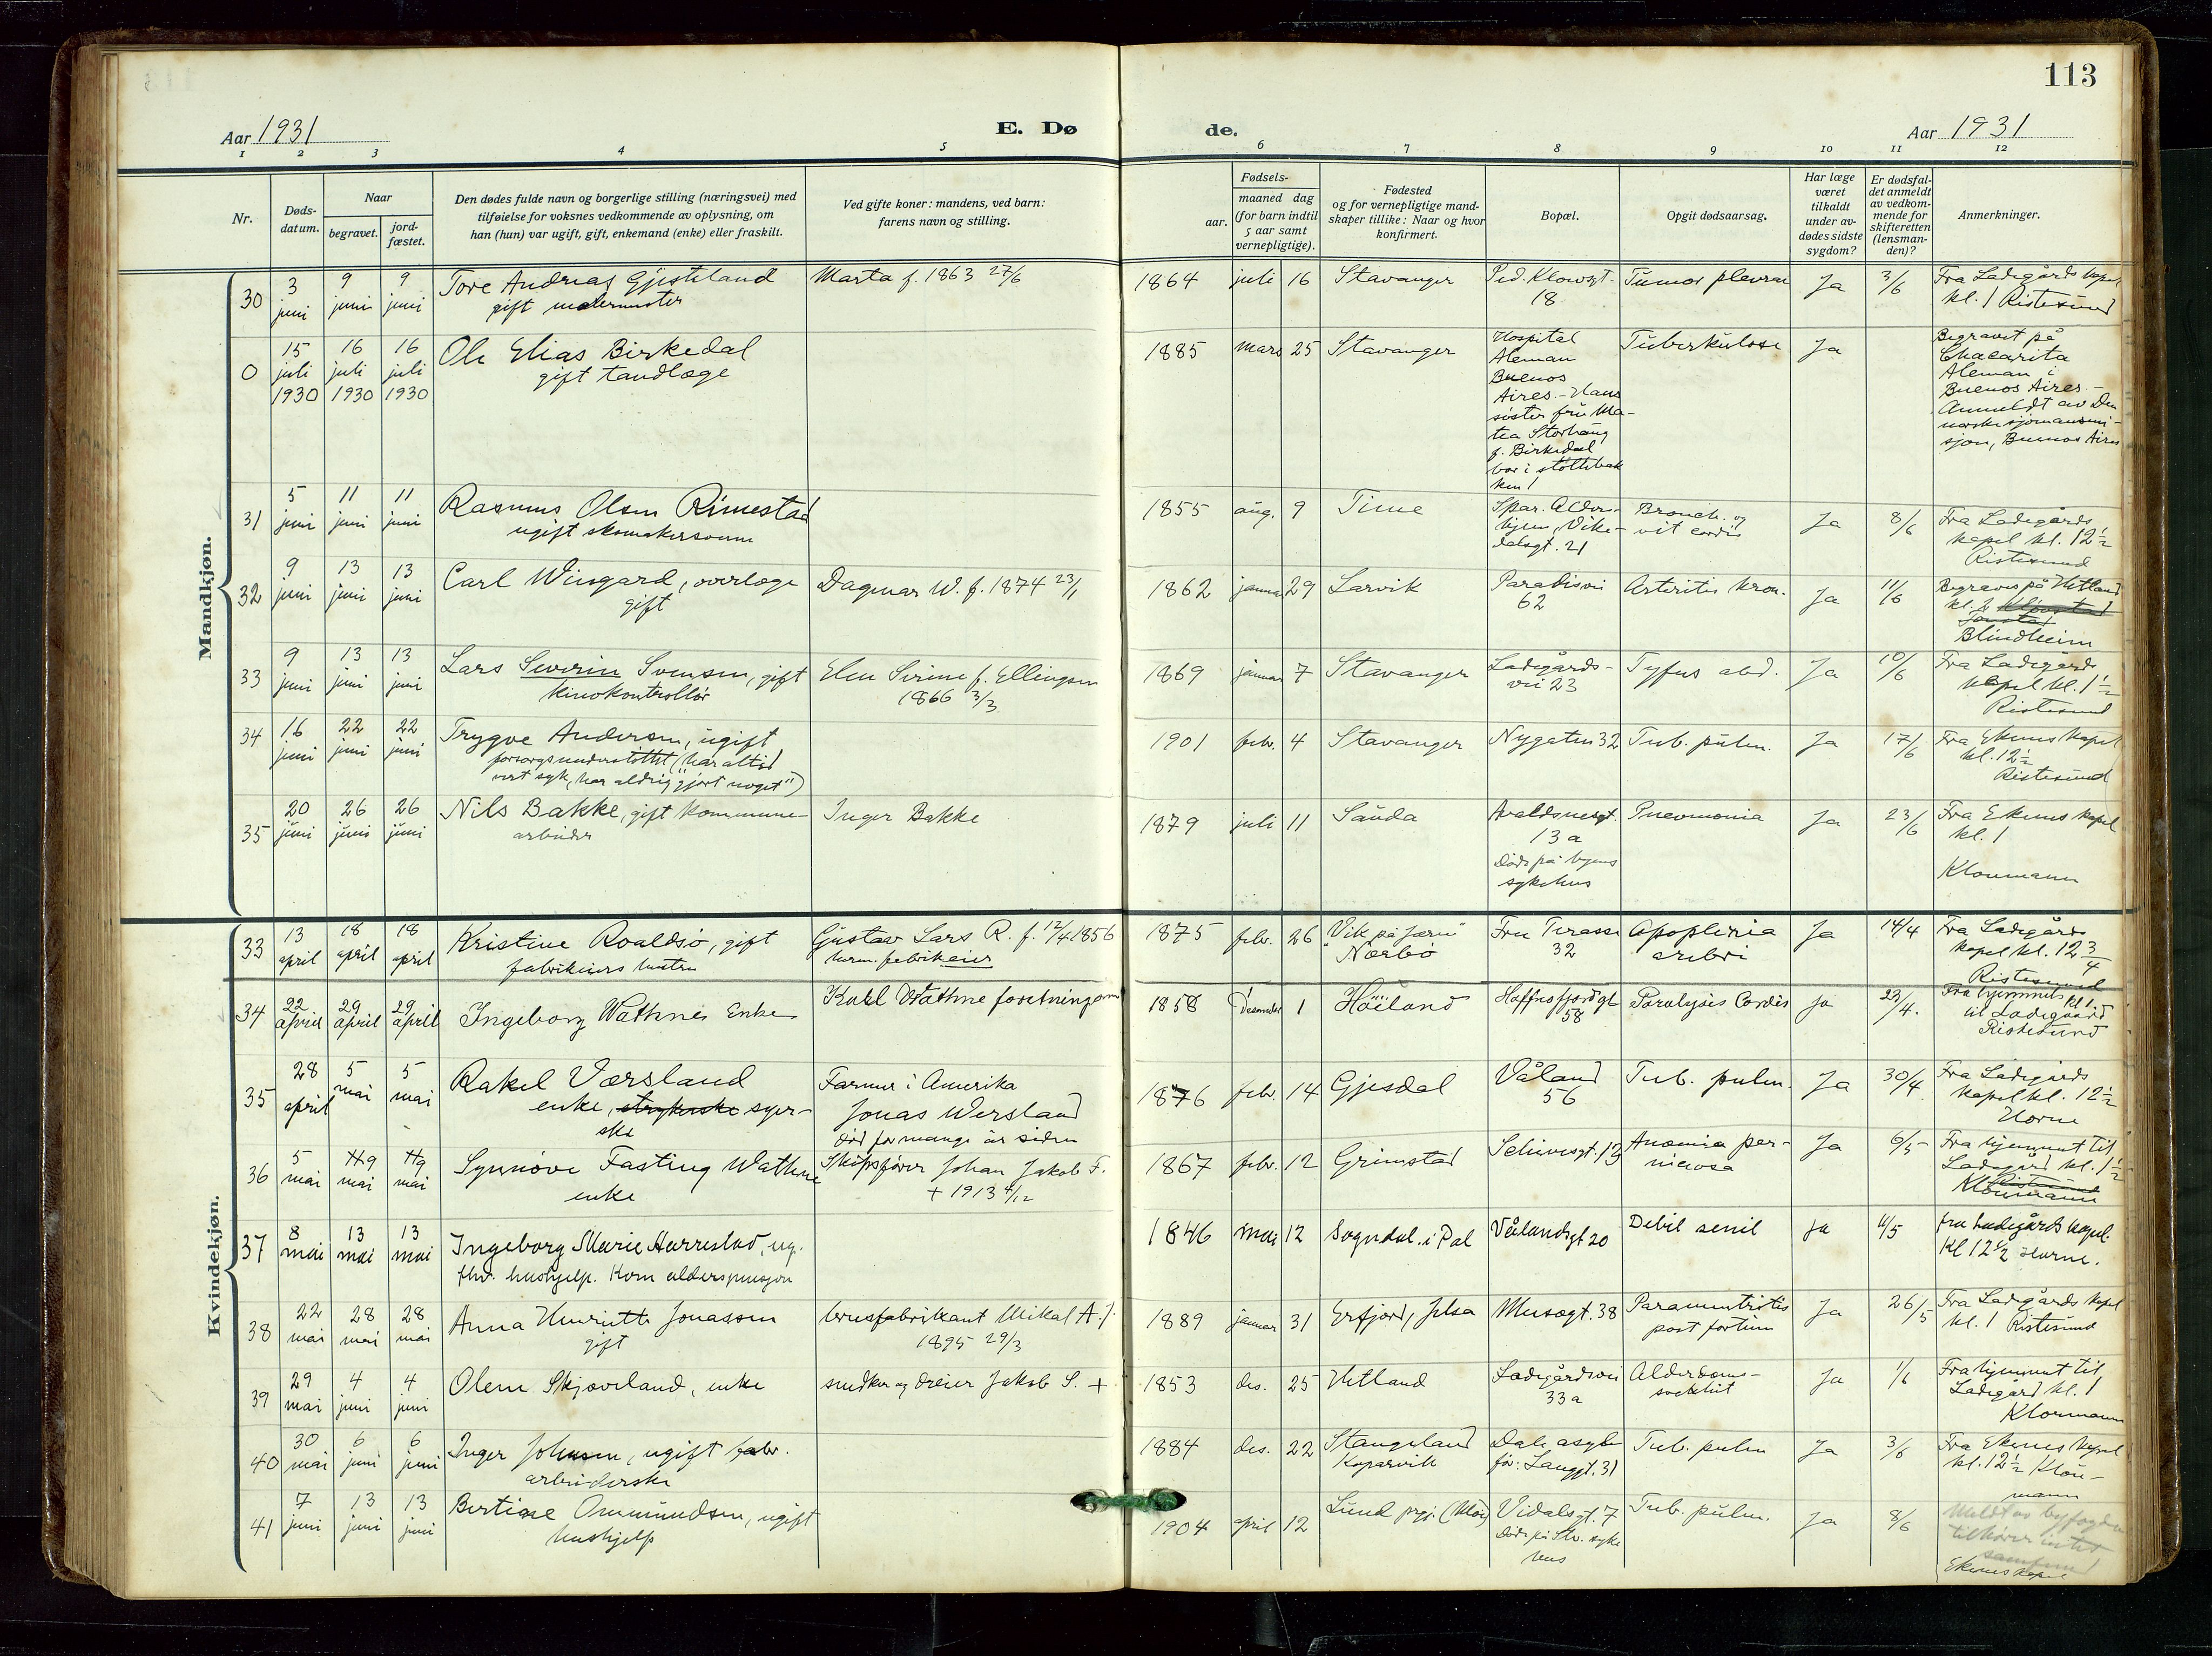 113
Aar 1931
E. Dø
de.
Aar 1931
1 2 3 4 5 6 7 8 9 10 11 12
Nr.
Døds-
datum.
Naar
begravet.
jord-
fæstet.
Den dødes fulde navn og borgerlige stilling (næringsvei) med
tilføielse for voksnes vedkommende av oplysning, om
han (hun) var ugift, gift, enkemand (enke) eller fraskilt.
Ved gifte koner: mandens, ved barn:
farens navn og stilling.
Fødsels-
aar.
maaned dag
(for barn indtil
5 aar samt
vernepligtige).
Fødested
og for vernepligtige mand-
skaper tillike: Naar og hvor
konfirmert.
Bopæl.
Opgit dødsaarsag.
Har læge
været
tilkaldt
under av-
dødes sidste
sygdom?
Er dødsfal-
det anmeldt
av vedkom-
mende for
skifteretten
(lensman-
den)?
Anmerkninger.
Mandkjøn.
30
3 juni
9 juni
9 juni
Tore Andreas Gjesteland
gift malermester
Marta f. 1863 27/6
1864 juli 16
Stavanger
Ped. Klowgt.
18
Tumor pleurae
Ja
3/6
Fra Ladegårds kapel
kl. 1 Ristesund
0
15 juli 1930
16 juli 1930
16 juli 1930
Ole Elias Birkedal
gift tandlæge
1885 mars 25
Stavanger
Hospital
Aleman
Buenos
Aires. - Hans
søster fru Ma-
tea Storhaug
f. Birkedal
bor i støttebak
ken 1
Tuberkulose
Ja
Begravet på
Chacarita
Aleman i
Buenos Aires. -
Anmeldt av Den
norske sjømannsmi-
sjon, Buenos Aires
31
5 juni
11 juni
11 juni
Rasmus Olsen Rimestad
ugift skomakersvenn
1855 aug. 9
Time
Spar. Alders-
hjem, Vike-
dalsgt. 21
Bronch. og
vit cordis
Ja
8/6
Fra Ladegårds
kapel kl. 12 1/2
Ristesund
32
9 juni
13 juni
13 juni
Carl Wingard, overlæge
gift
Dagmar W. f. 1874 23/1
1862 januar 29
Larvik
Paradisvei
62
Arteritis kron.
Ja
11/6
Begraves på Hetland
kl. 2
Blindheim
33
9 juni
13 juni
13 juni
Lars Severin Svensen, gift
kinokontrollør
Elen Serine f. Ellingsen
1866 3/3
1869 januar 7
Stavanger
Ladegårds-
vei 23
Tyfus abd.
Ja
10/6
Fra Ladegårds
kapel kl. 1 1/2
Ristesund
34
16 juni
22 juni
22 juni
Trygve Andersen, ugift
forsorgsunderstøttet (har altid
vært syk, har aldrig "gjort noget")
1901 febr. 4
Stavanger
Nygaten 32
Tub. pulm.
Ja
17/6
Fra Ekenes kapel
kl. 12 1/2
Ristesund
35
20 juni
26 juni
26 juni
Nils Bakke, gift kommune-
arbeider
Inger Bakke
1879 juli 11
Sauda
Avaldsnesgt.
13 a
Døde på byens
sykehus
Pneumonia
Ja
23/6
Fra Ekenes kapel
kl. 1
Kloumann
Kvindekjøn.
33
13 april
18 april
18 april
Kristine Roaldsø, gift
fabrikeiers hustru
Gustav Lars R. f. 12/4 1856
herm. fabrikeier
1875 febr. 26
"Vik på Jæren"
Nærbø
Fru Terasse
32
Apoplexia
cerebri
Ja
14/4
Fra Ladegårds
kapel kl. 12 3/4
Ristesund
34
22 april
29 april
29 april
Ingeborg Wathnes Enke
Karl Wathne foretningsm
1858 Desember 1
Høiland
Haffrsfjordgt
58
Paralysis Cordis
Ja
23/4.
Fra hjemmet kl 1
til Ladegaard
Ristesund
35
28 april
5 mai
5 mai
Rakel Værsland
enke, strykerske syer-
ske
Farmer i Amerika
Jonas Wersland
død for mange år siden
1876 febr. 14
Gjesdal
Våland
56
Tub. pulm.
Ja
30/4
Fra Ladegårds
kapel kl. 12 1/2
Horne
36
5 mai
9 mai
9 mai
Synnøve Fasting Wathne
enke
Skipsfører Johan Jakob F.
+ 1913 4/12
1867 febr. 12
Grimstad
Schivesgt. 13
Anæmia per-
niciosa
Ja
6/5
Fra hjemmet til
Ladegård kl. 1 1/2
Ristesund
Kloumann
37
8 mai
13 mai
13 mai
Ingeborg Marie Harrestad, ug.
fhv. hushjelp. Kom alderspensjon
1846 mai 12
Sogndal. i Dal
Vålandsgt 20
Debil senil
Ja
11/5
fra Ladegårds kapel.
Kl 12 1/2 Horne.
38
22 mai
28 mai
28 mai
Anna Henriette Jonassen
gift
brusfabrikant Mikal A. J.
1895 29/3
1889 januar 31
Erfjord, Jelsa
Musegt. 38
Parametritis
post partum
Ja
26/5
Fra Ladegårds kapel
kl. 1 Ristesund
39
29 mai
4 juni
4 juni
Olene Skjæveland, enke
snedker og dreier Jakob S. +
1853 des. 25
Hetland
Ladegårdsvei
33 a
Alderdoms-
svekket
Ja
1/6
Fra hjemmet til
Ladegård kl. 1
Kloumann
40
30 mai
6 juni
6 juni
Inger Johnsen, ugift fabr.
arbeiderske
1884 des. 22
Stangeland
Kopervik
Dale asyl
før: Langgt. 31
Tub. pulm
Ja
3/6
Fra Ekenes kapel
kl. 12 1/2 Klou-
mann
41
7 juni
13 juni
13 juni
Bertine Ommundsen, ugift
hushjelp
1904 april 12
Lund prgj. (Moi)
Vidalsgt. 7
Døde på Stv. syke
hus
Tub. pulm.
Ja
8/6
Meldt av byfogden
tilhører intet
samfund
Ekenes kapel